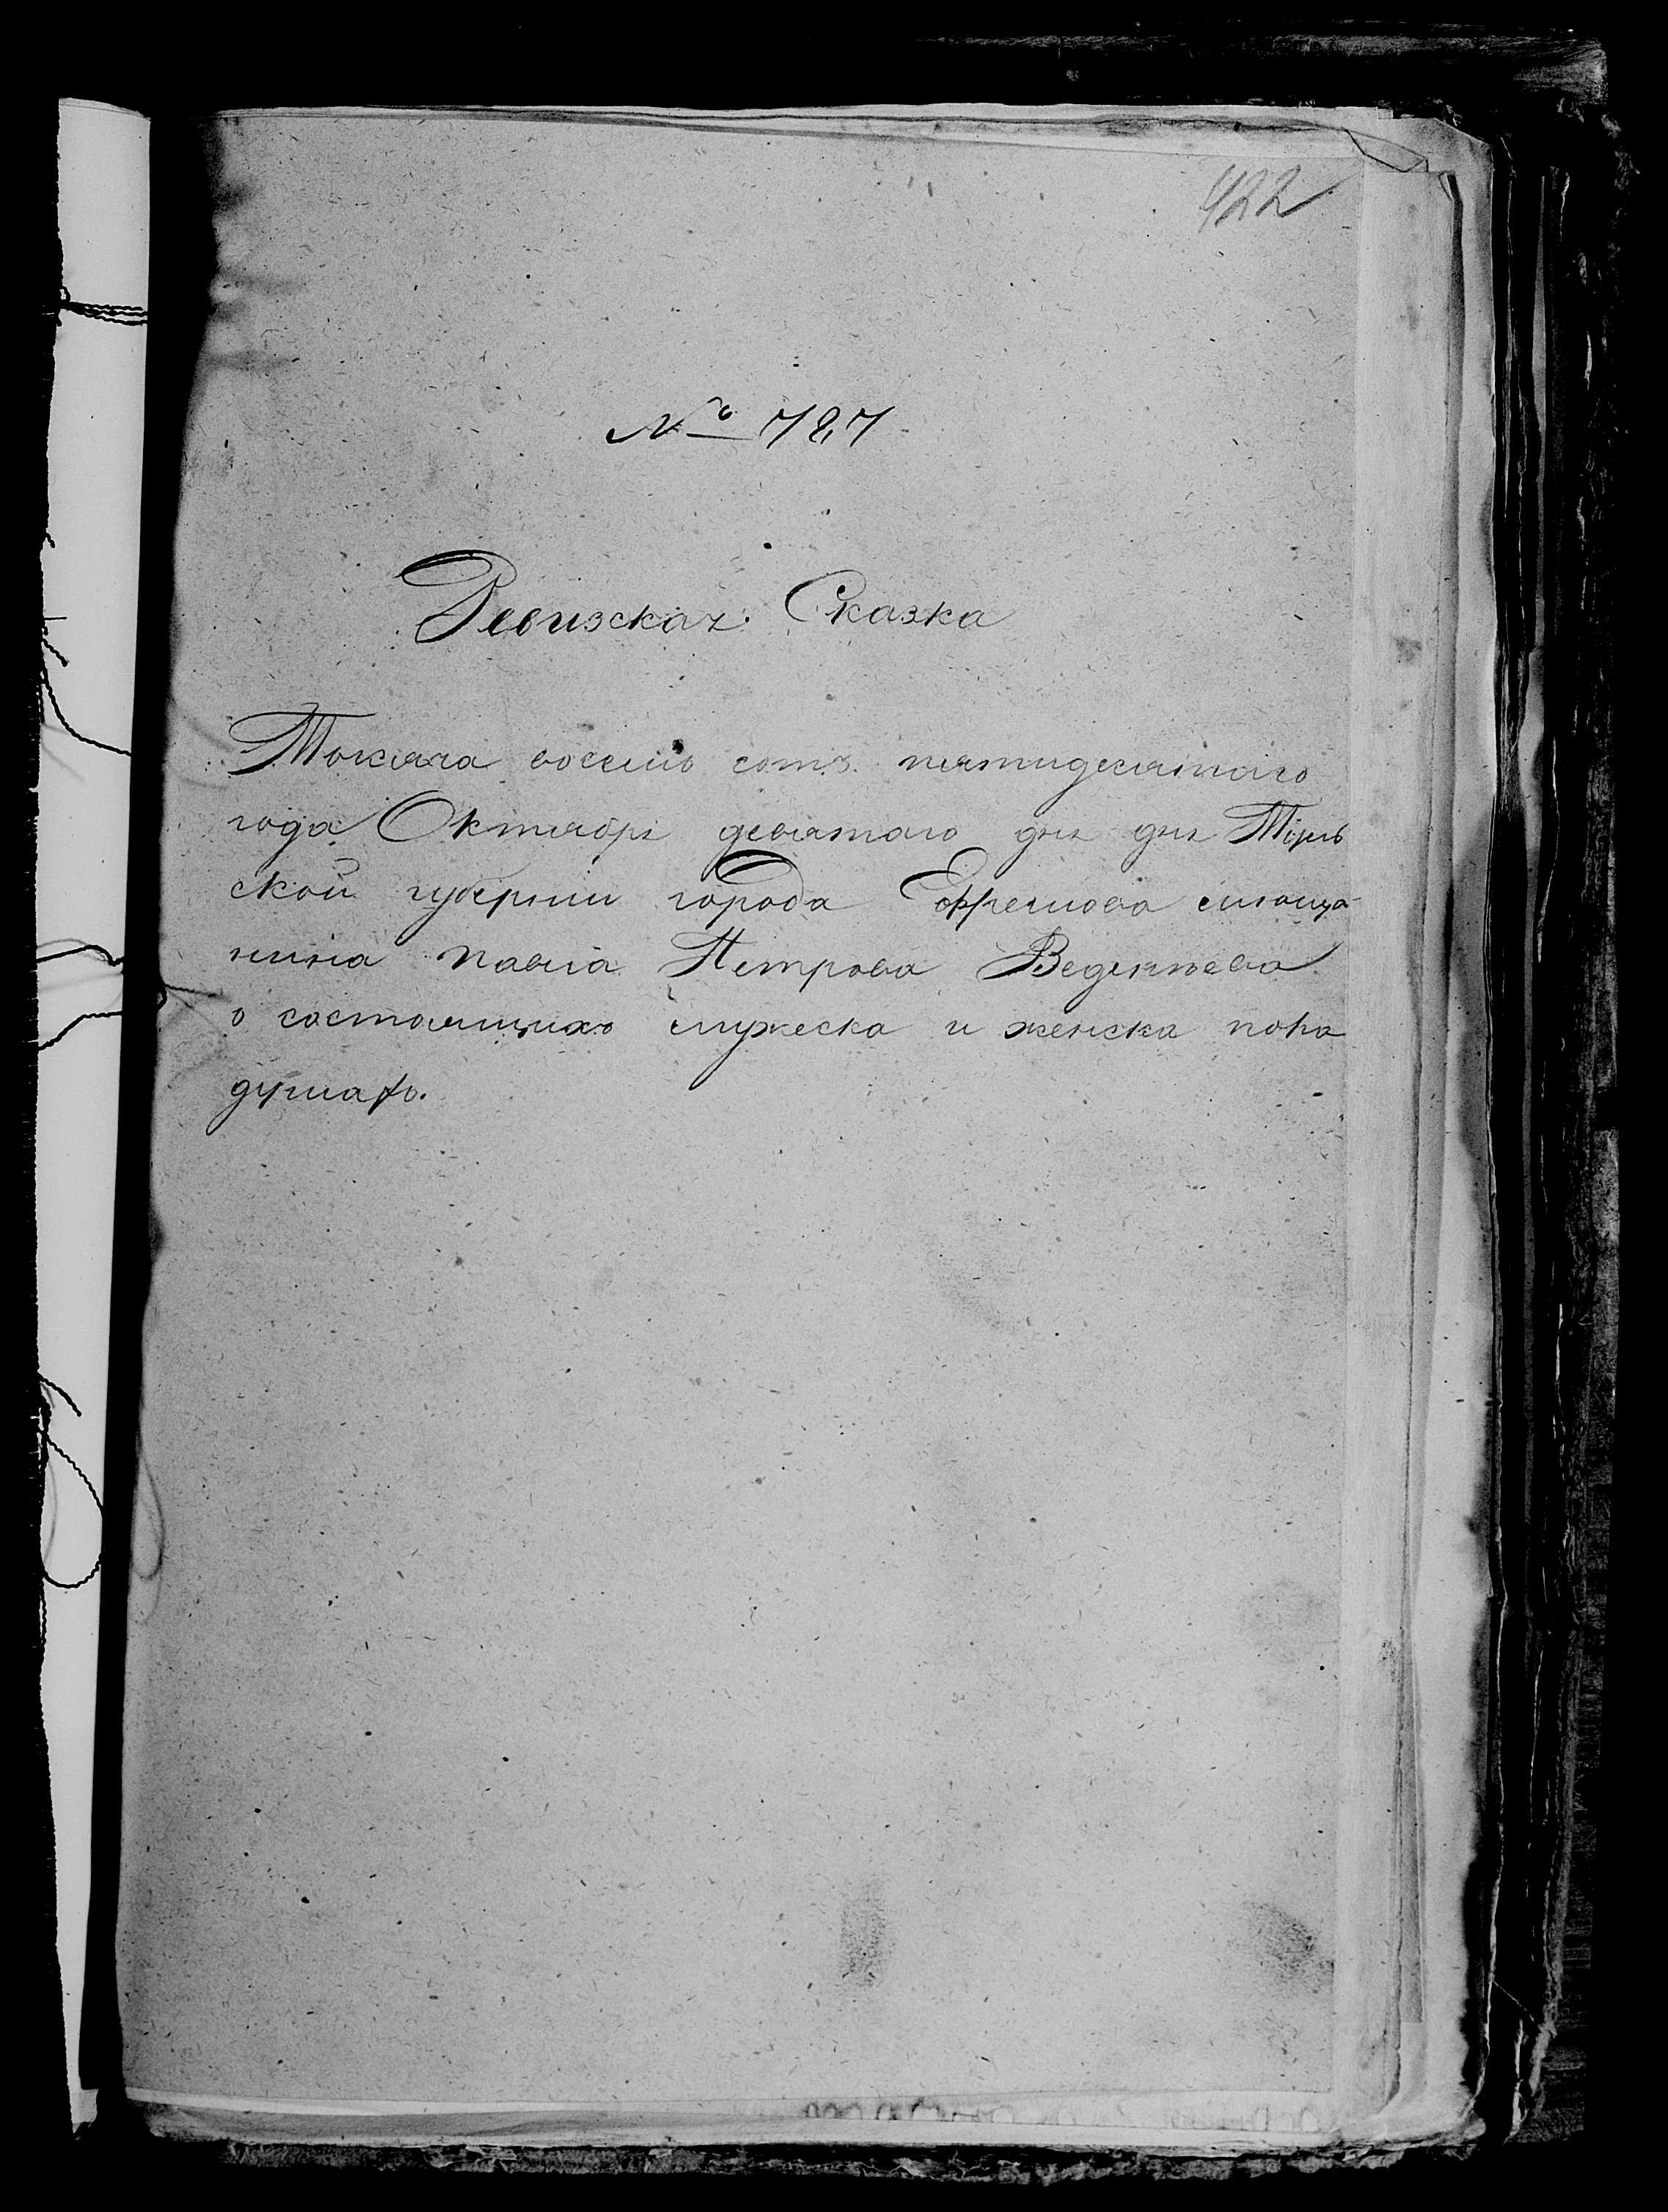 422
№ 787
Ревизская Сказка
Тысяча восемь сотъ пятидесятого
года Октября девятого дня дня Туль
ской губерніи города Ефремова меща-
нина Павла Петрова Веденеева
о состоящихъ мужеска и женска пола
душахъ.